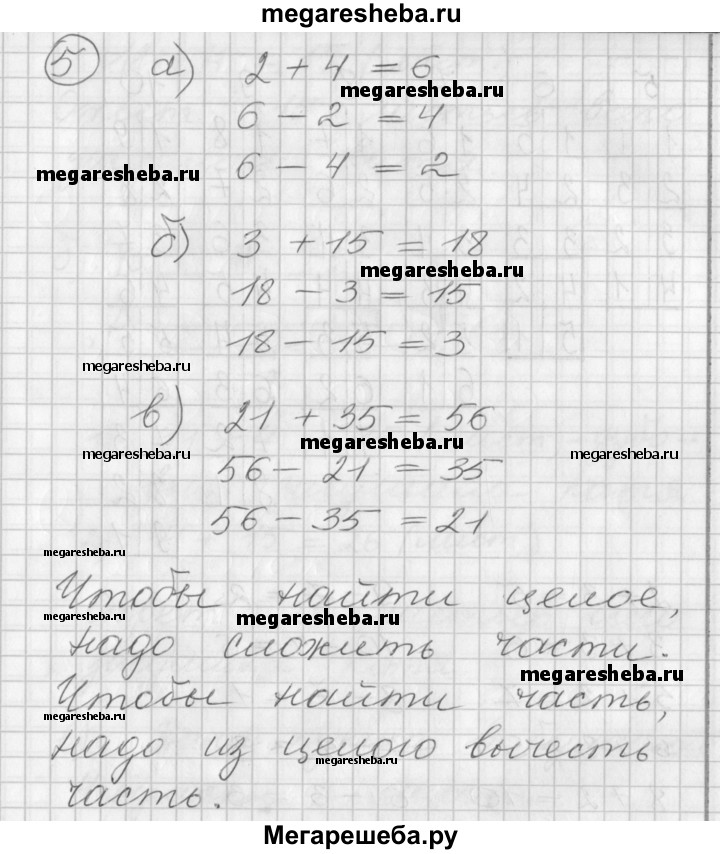 megaresheba.ru
5 а) 2 + 4 = 6
megaresheba.ru
6 - 2 = 4
6 - 4 = 2
megaresheba.ru
б) 3 + 15 = 18
megaresheba.ru
18 - 3 = 15
18 - 15 = 3
megaresheba.ru
в) 21 + 35 = 56
megaresheba.ru
megaresheba.ru
megaresheba.ru
56 - 21 = 35
56 - 35 = 21
megaresheba.ru
Чтобы найти целое,
megaresheba.ru
надо сложить части.
megaresheba.ru
Чтобы найти часть,
megaresheba.ru
надо из целого вычесть
megaresheba.ru
часть.
Мегарешеба.ру